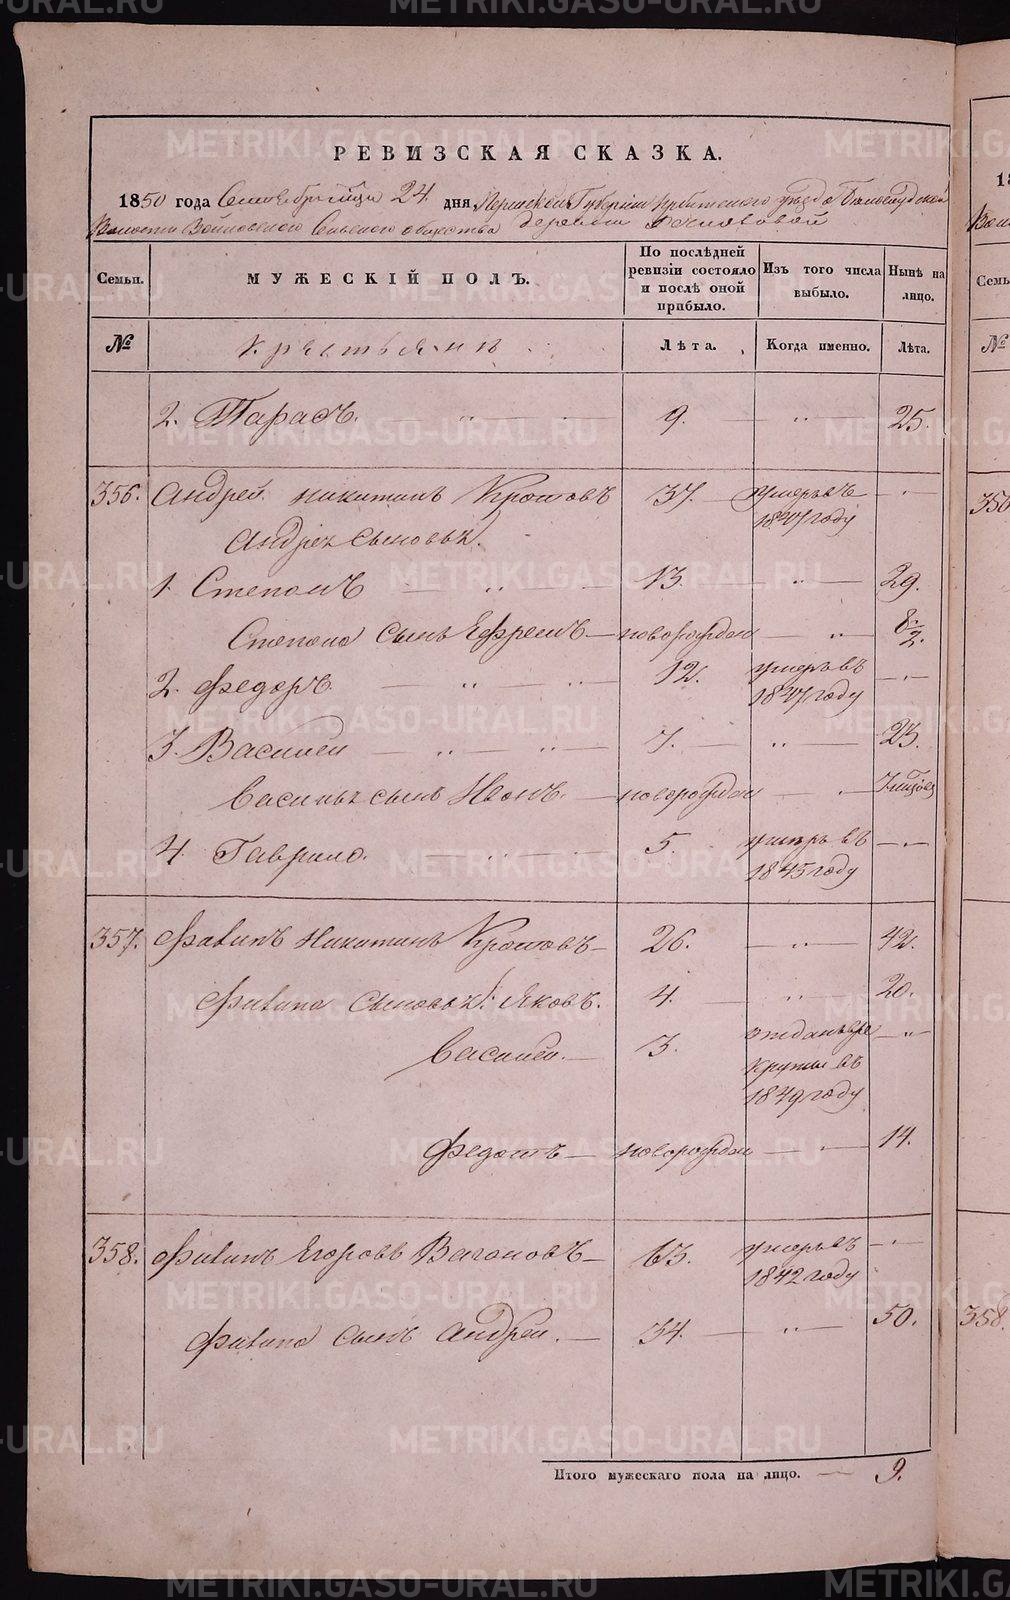 РЕВИЗСКАЯ СКАЗКА.
1850 года Сентября 24 дня, Пермской Губернии Ирбитского уезда Белослудской
Волости Сельского общества деревни
Семьи. МУЖЕСКІЙ ПОЛЪ. По послѣдней ревизіи состояло и послѣ оной прибыло. Изъ того числа выбыло. Нынѣ на лицо.
№ Крестьяне Лѣта. Когда именно. Лѣта.
2. Тарасъ. 9. 25.
356. Андрей Никитинъ Кротовъ 37. умеръ въ 1847 году
Андрея сыновья
1. Степанъ 13. 29.
Степана сынъ Ефремъ новорожден 8 1/2.
2. Федоръ. 12. умеръ въ 1847 году
3. Василей 7. 23.
Василья сынъ Иванъ. новорожден
4. Гаврило. 5. умеръ въ 1845 году
357. Филипъ Никитинъ Кротовъ 26. 42.
Филипа сыновья: Яковъ. 4. 20.
Василей. 3. отданъ въ рекруты въ 1849 году
Федотъ новорожден 14.
358. Филипъ Егоровъ Вагановъ 63. умеръ въ 1842 году
Филипа сынъ Андрей. 34. 50.
Итого мужескаго пола на лицо. 9.
350
358.
METRIKI.GASO-URAL.RU